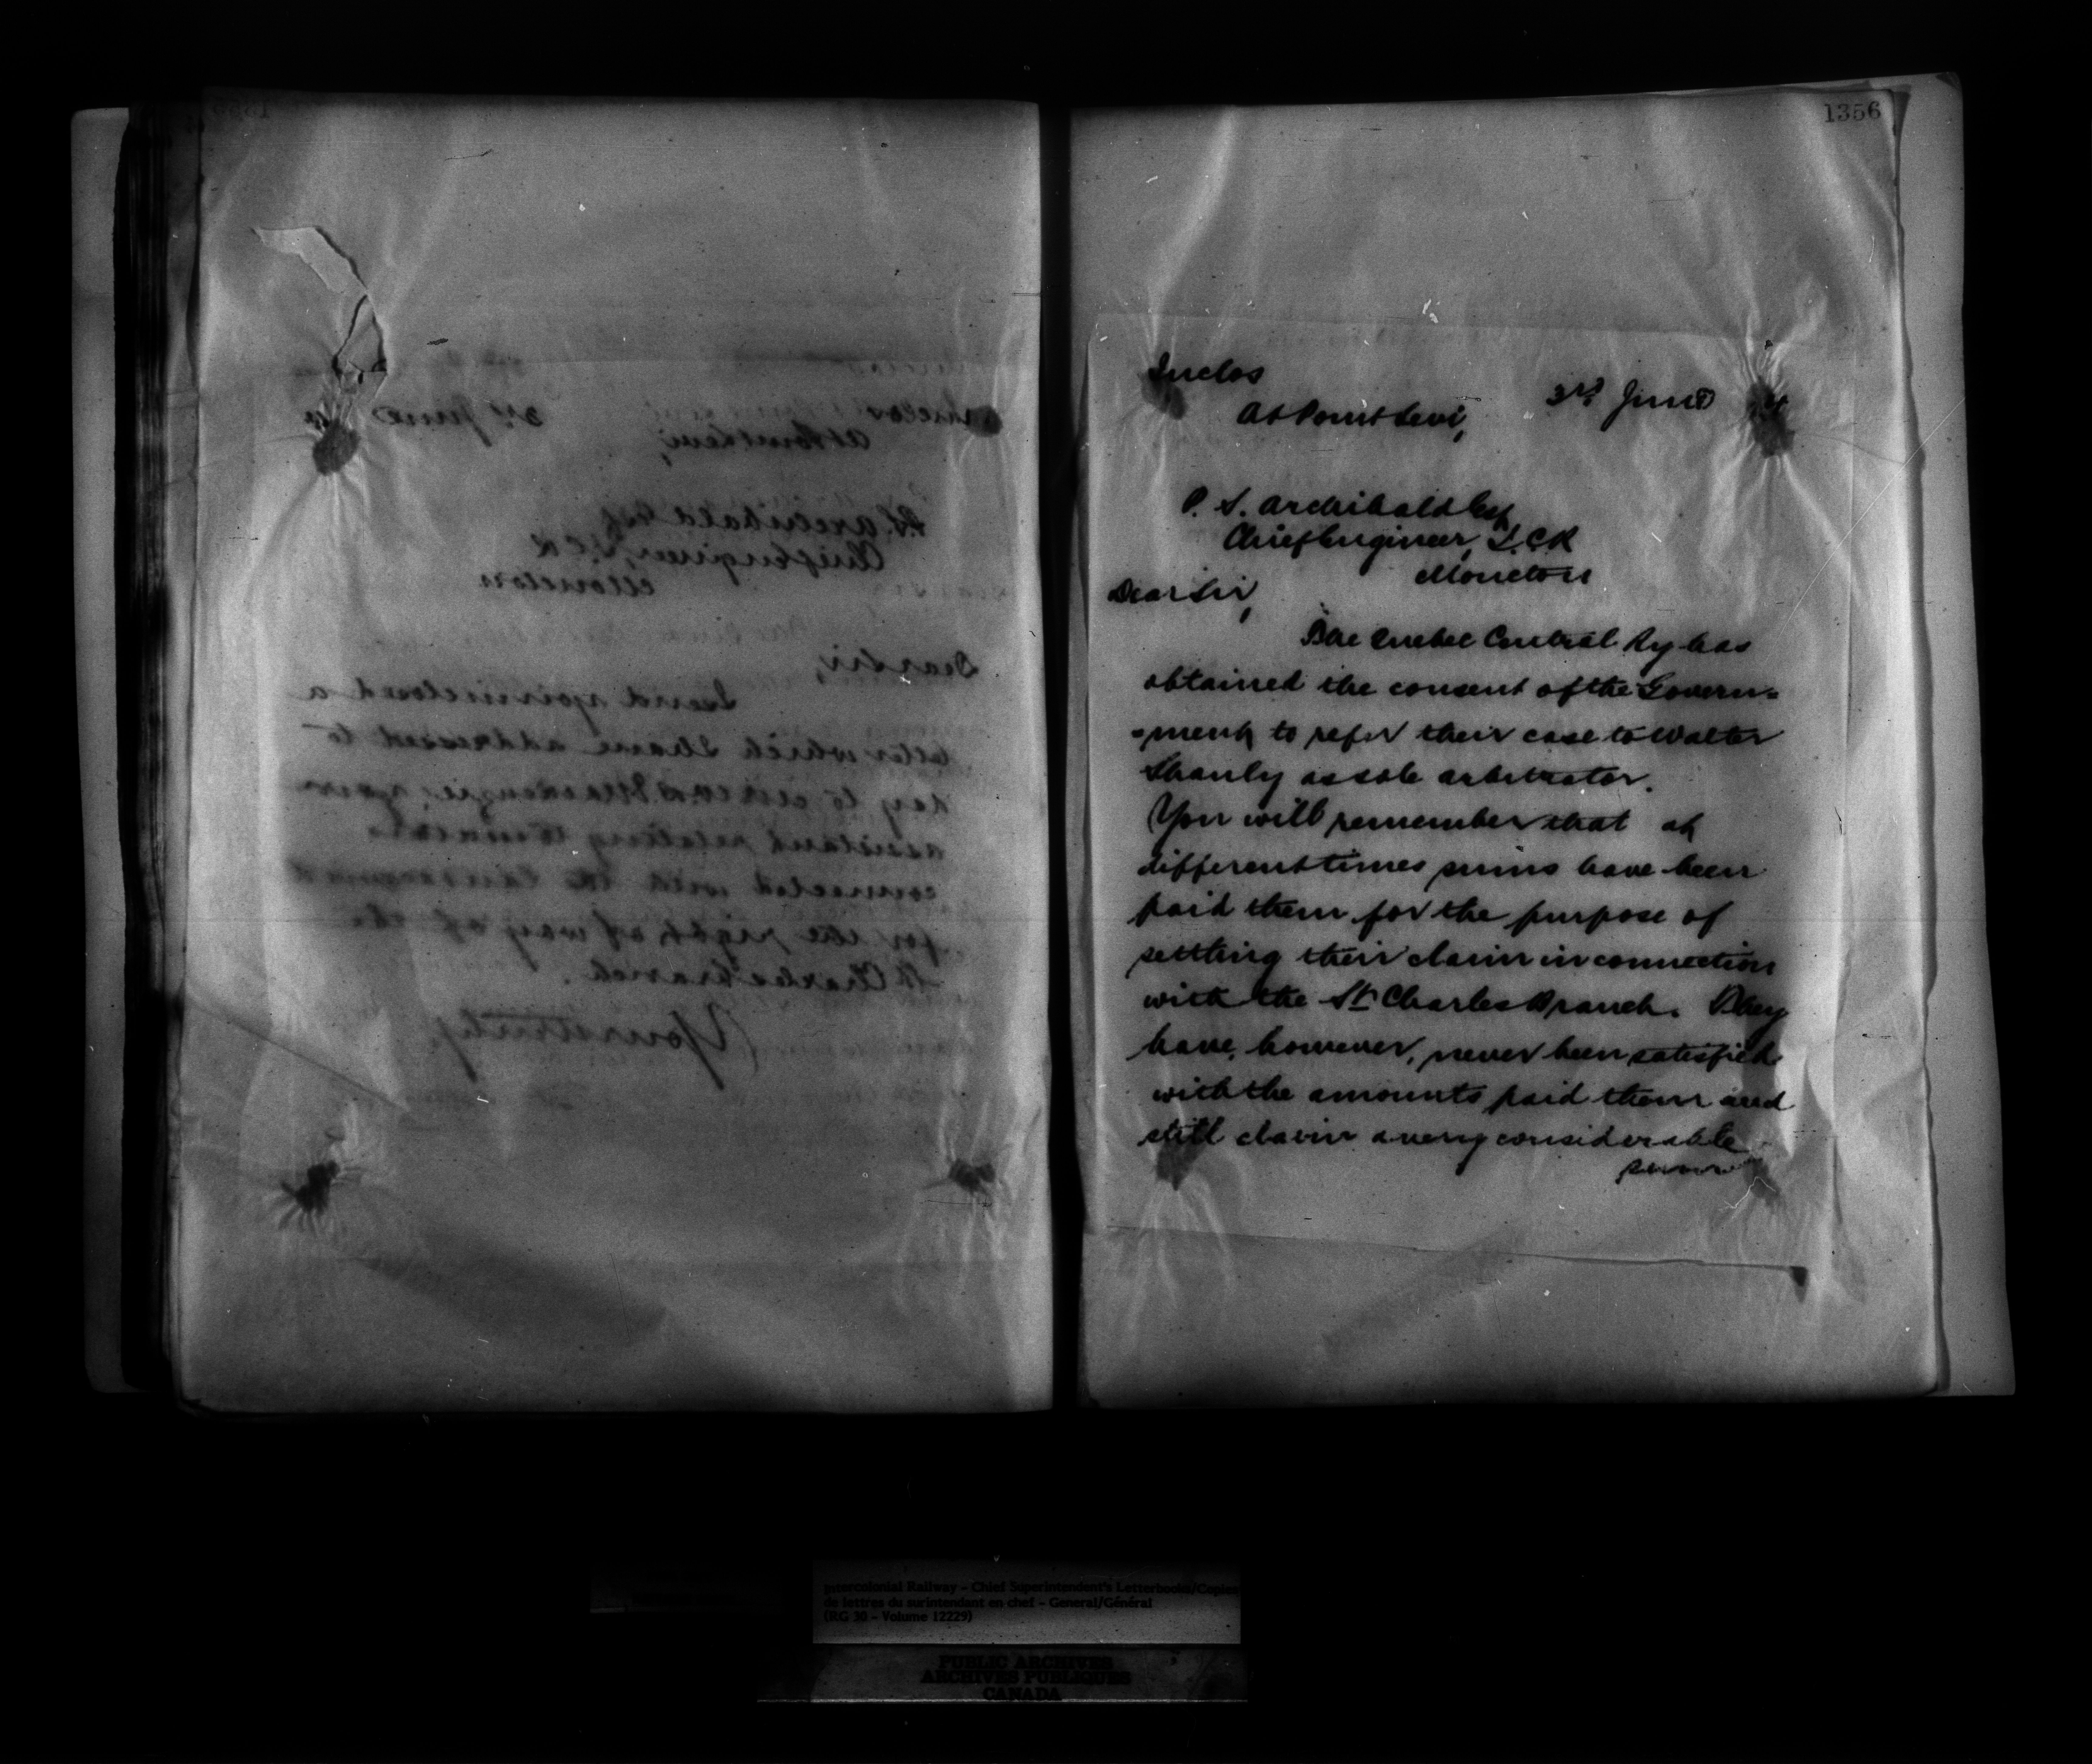 1356
Inclos
At Point Levi,
3rd June
P. S. Archibald Esq
Chief Engineer, I.C.R
Moncton
Dear Sir,
The Quebec Central Ry has
obtained the consent of the Govern=
=ment to refer their case to Walter
Shanly as sole arbitrator.
You will remember that at
different times sums have been
paid them for the purpose of
settling their claim in connection
with the St Charles Branch. They
have, however, never been satisfied
with the amounts paid them and
still claim a very considerable
sum
Inclos
At Point Levi,
3rd June
P.S. Archibald Esq
Chief Engineer, I.C.R
Moncton
Dear Sir,
I send you inclosed a
letter which I have addressed to
day to Mackenzie, your
assistant relating to
connected with the
for the right of way of the
St Charles Branch.
Yours truly
Intercolonial Railway - Chief Superintendent's Letterbooks/Copies
de lettres du surintendant en chef - General/Général
(RG 30 - Volume 12229)
PUBLIC ARCHIVES
ARCHIVES PUBLIQUES
CANADA